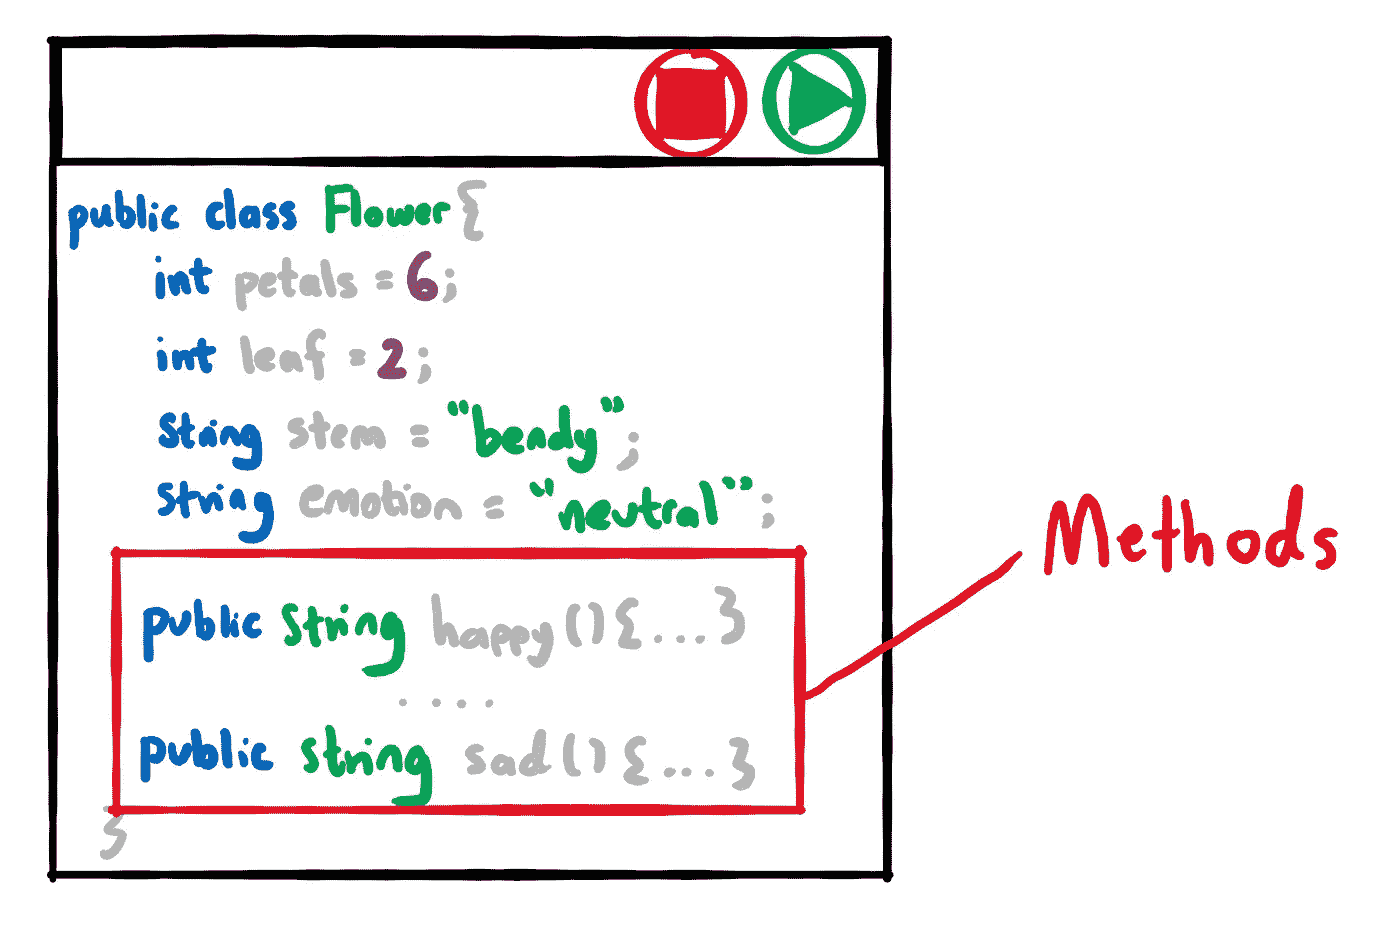 public class Flower{
int petals = 6;
int leaf = 2;
String stem = "bendy";
String emotion = "neutral";
public String happy(){...}
....
public string sad(){...}
}
Methods